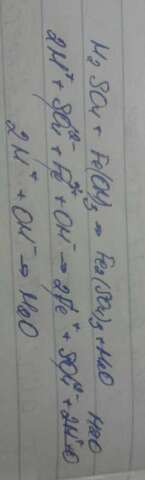 H₂SO₄ + Fe(OH)₃ → Fe₂(SO₄)₃ + H₂O H₂O
2H⁺ + SO₄²⁻ + Fe + OH⁻ → 2Fe⁺ + SO₄²⁻ + 2H₂O
2H⁺ + OH⁻ → H₂O